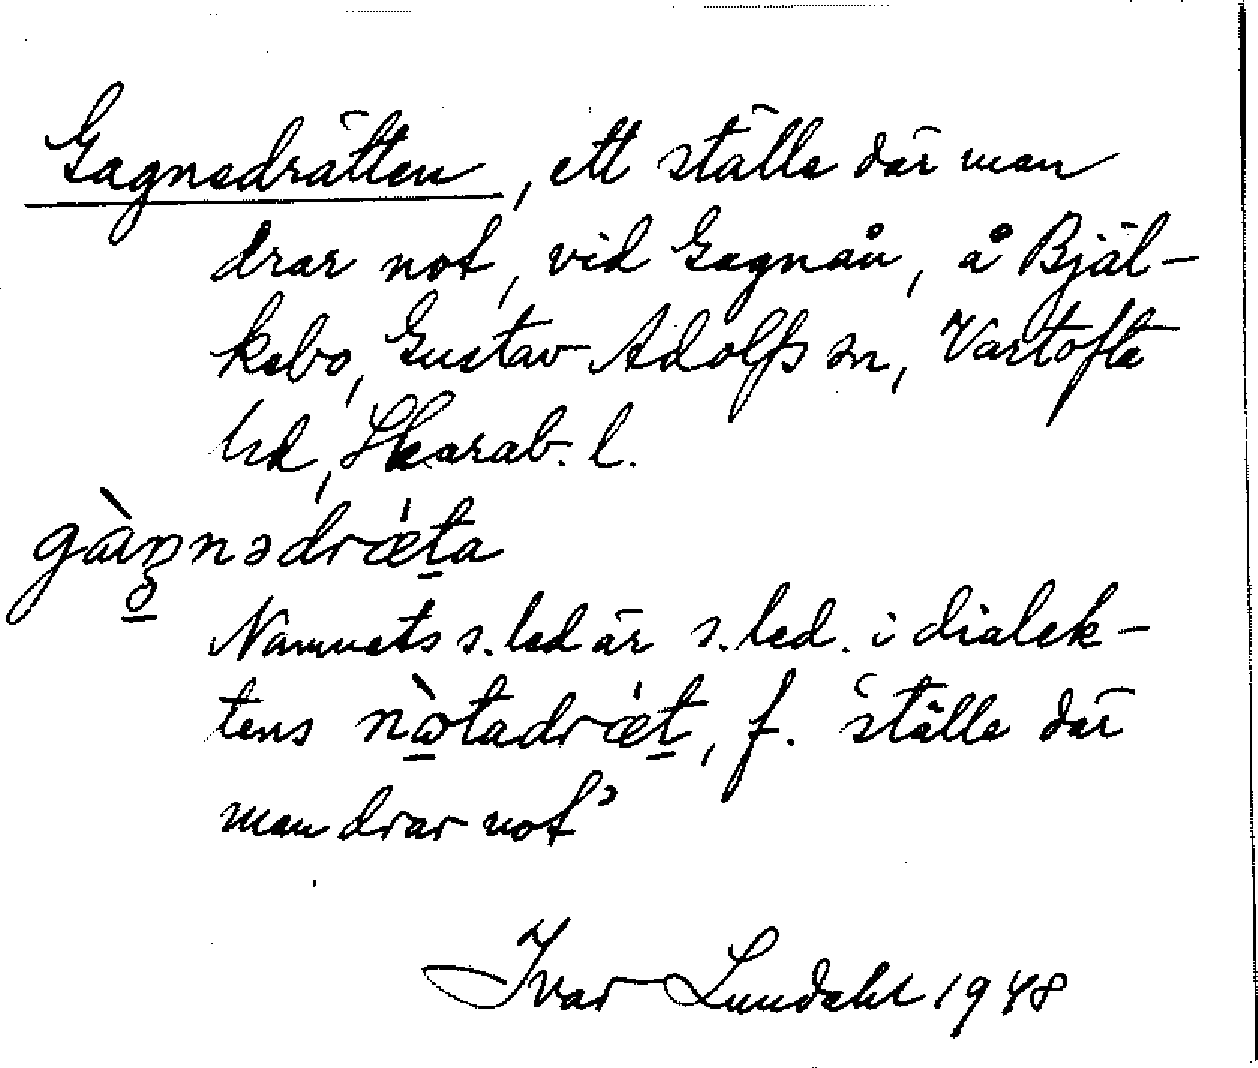 Gagnedrätten, ett ställe där man
drar not, vid Gagnån, å Bjäl-
kebo, Gustav Adolfs sn, Vartofta
hd, Skarab. l.
gàŋnədræ̍ta
Namnets s. led är s. led. i dialek-
tens nòtadræ̍t, f. 'ställe där
man drar not'
Ivar Lundahl 1948